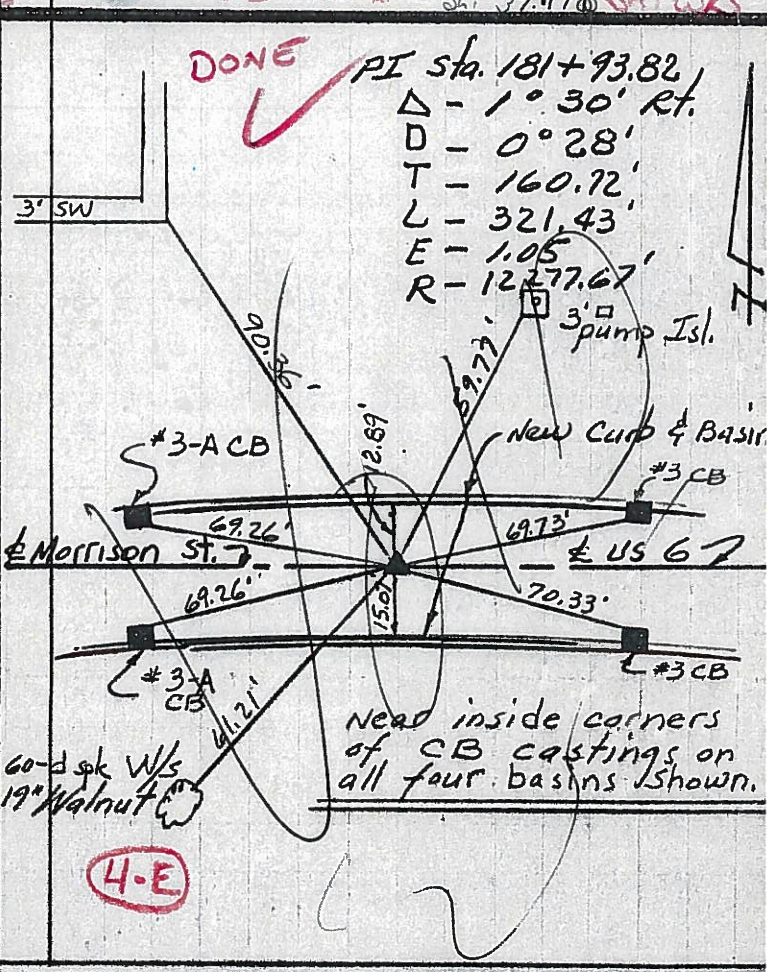 DONE
PI Sta. 181+93.82
Δ - 1° 30' Rt.
D - 0° 28'
T - 160.72'
L - 321.43'
E - 1.05'
R - 12,277.67'
3' SW
3' □
pump Isl.
90.36'
12.89'
New Curb & Basin
#3-A CB
#3 CB
69.26'
69.73'
℄ Morrison St.
℄ US 6
69.26'
70.33'
15.07
#3-A
CB
#3 CB
61.21'
Near inside corners
of CB castings on
all four basins shown.
60-d spk W/s
19" Walnut
4-E